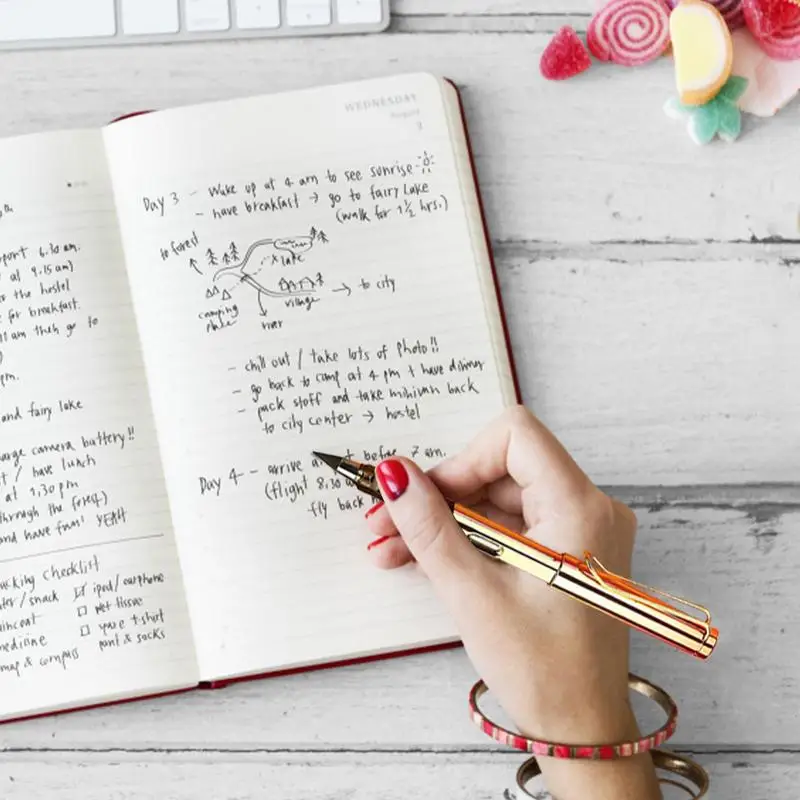 port 6.10 am.
at 9.15 am)
the hostel
for breakfast.
am then go to
pm.
and fairy lake
camera battery!!
/ have lunch
at 4,30 pm
through the forest)
and have fun! YEAH
checklist
/ snack
ipod / earphone
wet tissue
t-shirt
pant & socks
map & compass
WEDNESDAY
August
Day 3 - Wake up at 4 am to see sunrise
- have breakfast → go to fairy Lake
(walk for 1 1/2 hrs.)
to forest
lake
→ to city
village
camping
place
river
- chill out / take lots of photo!!
- go back to camp at 4 pm + have dinner
- pack stoff and take minivan back
to city center → hostel
Day 4 - arrive before 7 am.
(flight 8,30
fly back